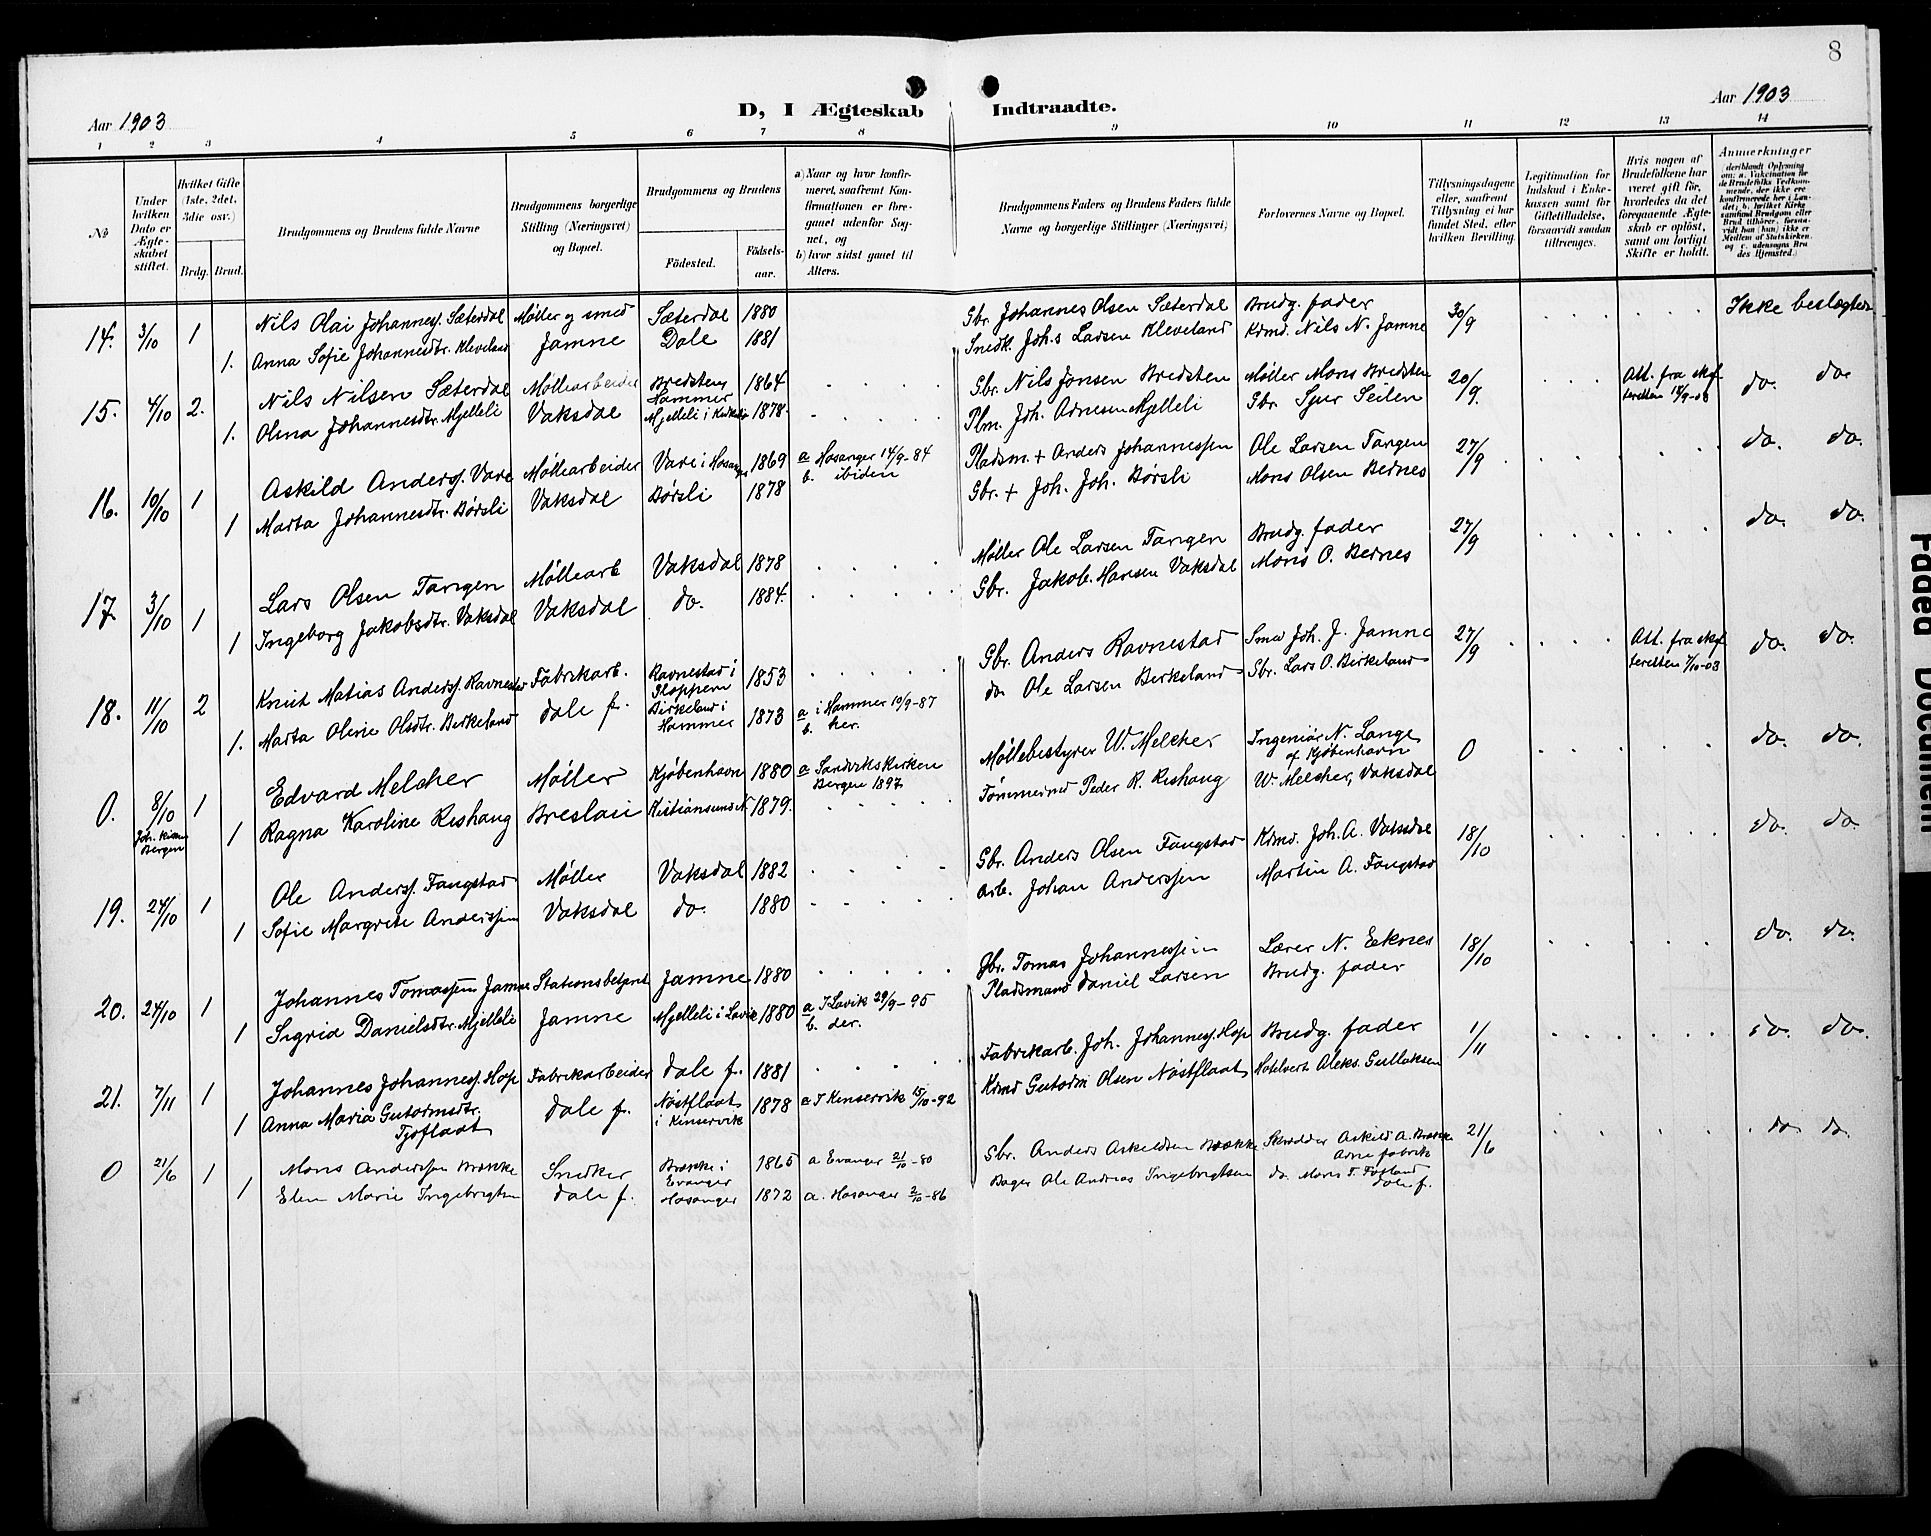 8
Aar 1903
D, I Ægteskab Indtraadte.
Aar 1903
1 2 3 4 5 6 7 8 9 10 11 12 13 14
No
Under hvilken Dato er Ægteskabet stiftet.
Hvilket Gifte (1ste, 2det, 3die osv.)
Brdg. Brud.
Brudgommens og Brudens fulde Navne
Brudgommens borgerlige Stilling (Næringsvei) og Bopæl.
Brudgommens og Brudens
Fødested. Fødselsaar.
a) Naar og hvor konfirmeret, saafremt Konfirmationen er foregaaet udenfor Sognet, og
b) hvor sidst gaaet til Alters.
Brudgommens Faders og Brudens Faders fulde Navne og borgerlige Stillinger (Næringsvei)
Forlovernes Navne og Bopæl.
Tillysningsdagene eller, saafremt Tillysning ei har fundet Sted, efter hvilken Bevilling.
Legitimation for Indskud i Enkekassen samt for Giftetilladelse, forsaavidt saadan tiltrænges.
Hvis nogen af Brudefolkene har været gift før, hvorledes da det foregaaende Ægteskab er opløst, samt om lovligt Skifte er holdt.
Anmærkninger
(deriblandt Oplysning om: a. Vakcination for de Brudefolks Vedkommende, der ikke ere konfirmerede her i Landet; b. hvilket Kirkesamfund Brudgom eller Brud tilhører, forsaavidt han (hun) ikke er Medlem af Statskirken, og c. udensogns Brudes Hjemsted.)
14. 3/10 1 Nils Olai Johanness. Sæterdal Møller og smed Sæterdal 1880 Gbr. Johannes Olsen Sæterdal Brudg. fader 30/9 Ikke beslægtede
1. Anna Sofie Johannesdtr. Kleveland Jamne Dale 1881 Snedk. Joh.s Larsen Kleveland Krmd. Nils N. Jamne
15. 4/10 2. Nils Nilsen Sæterdal Møllearbeider Bredsten Hammer 1864 Gbr. Nils Jonsen Bredsten Møller Mons Bredsten 20/9. Att. fra skifteretten 18/9-03 do. do.
1. Olina Johannesdtr. Mjelleli Vaksdal Mjelleli i 1878. Plm. Joh. Arnesen Mjelleli Gbr. Sjur Seilen
16. 10/10 1 Askild Anderss. Vare Møllearbeider Vare i Hosanger 1869 a Hosanger 14/9-84 b. ibiden Pladsm. + Anders Johannessen Ole Larsen Tangen 27/9 do. do.
1 Marta Johannesdtr. Børsli Vaksdal Børsli 1878 Gbr. + Joh. Joh. Børsli Mons Olsen Bernes
17. 3/10 1 Lars Olsen Tangen Møllearb Vaksdal 1878 Møller Ole Larsen Tangen Brudg. fader 27/9 do. do.
1 Ingeborg Jakobsdtr. Vaksdal Vaksdal do. 1884. Gbr. Jakob Hansen Vaksdal Mons O. Bernes
18. 11/10 2 Knut Matias Anderss. Ravnestad Fabrikarb. Ravnestad i Kloppem 1853 Gbr. Anders Ravnestad Smed Joh. J. Jamne 27/9 Att. fra skifteretten 1/10-03 do. do.
1. Marta Oline Olsdtr. Birkeland Dale f. Birkeland i Hammer 1873 a i Hammer 10/9-87 b. her. do Ole Larsen Birkeland Gbr. Lars O. Birkeland
0. 8/10 Joh. kirken Bergen 1 Edvard Melcher Møller Kjøbenhavn 1880 a Sandvikskirken Bergen 1897 Møllebestyrer W. Melcher Ingeniør N. Lange af Kjøbenhavn 0 do. do.
1 Ragna Karoline Rishaug Breslau Kristiansund N 1879. Tømmermd Peder R. Rishaug W. Melcher, Vaksdal
19. 24/10 1 Ole Anderss. Fangstad Møller Vaksdal 1882 Gbr. Anders Olsen Fangstad Krmd. Joh. A. Vaksdal 18/10 do. do.
1 Sofie Margrete Anderssen Vaksdal do. 1880 Arb. Johan Anderssen Martin A. Fangstad
20. 24/10 1 Johannes Tomassen Jamne Stationsbetjent Jamne 1880 Gbr. Tomas Johannessen Lærer N. Eeknes 18/10 do. do.
1 Sigrid Danielsdtr. Mjelleli Jamne Mjelleli i Lavik 1880 a I Lavik 29/9-95 b. der. Pladsmand Daniel Larsen Brudg. fader
21. 7/11 1 Johannes Johanness. Hop Fabrikarbeider Dale f. 1881 Fabrikarb. Joh. Johanness. Hop Brudg. fader 1/11 do. do.
1 Anna Maria Gutormsdtr. Tjoflaat Dale f. Nøstflaat i Kinservik 1878 a I Kinservik 15/10-92 Krmd Gutorm Olsen Nøstflaat Hotelvert Aleks. Gullaksen
0 21/6 1 Mons Anderssen Brække Snedker Brække i Evanger 1865 a Evanger 21/10-80 Gbr. Anders Askeldsen Brække Skrædder Askild A. Brække Arne fabrik 21/6 do do.
1 Elen Marie Ingebrigtsen Dale f. Hosanger 1872 a. Hosanger 2/10-86 Bager Ole Andreas Ingebrigtsen do. Mons T. Fosland Dale f.
Faded Document